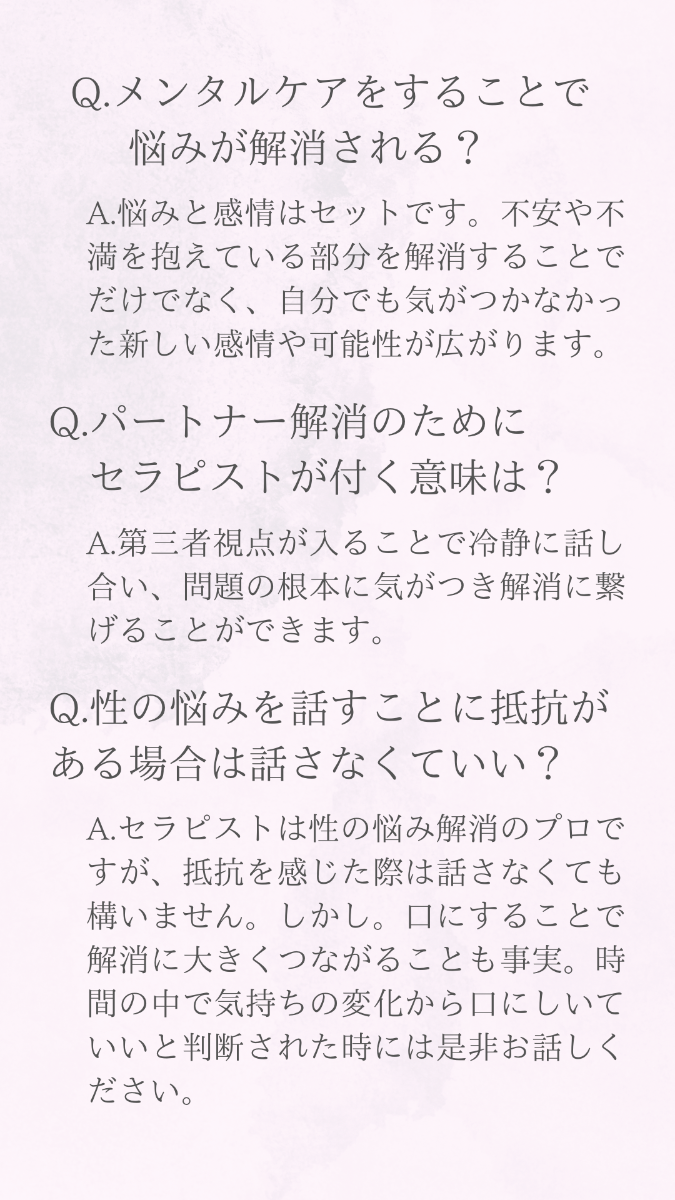 Q.メンタルケアをすることで
悩みが解消される？
A.悩みと感情はセットです。不安や不
満を抱えている部分を解消することで
だけでなく、自分でも気がつかなかっ
た新しい感情や可能性が広がります。
Q.パートナー解消のために
セラピストが付く意味は？
A.第三者視点が入ることで冷静に話し
合い、問題の根本に気がつき解消に繋
げることができます。
Q.性の悩みを話すことに抵抗が
ある場合は話さなくていい？
A.セラピストは性の悩み解消のプロで
すが、抵抗を感じた際は話さなくても
構いません。しかし。口にすることで
解消に大きくつながることも事実。時
間の中で気持ちの変化から口にしいて
いいと判断された時には是非お話しく
ださい。